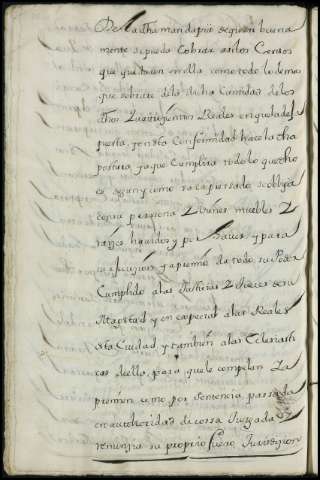 De la dha manda pia segun buena
mente se pueda Cobrar a los Censos
que quedaren en ella como todo lo demas
que sobrare de la dicha Cantidad de los
dhos Reales en queda de la
puesta, y en esta Conformidad hace la dha
postura, y a que Cumplira todo lo que dho
es segun y como va expresado se obliga
con su persona y vienes muebles y
raizes, havidos y por haver, y para
su execucion, y apremio da todo su Poder
Cumplido a las Justicias y Jueces de su
Magestad y en especial a las Reales
esta Ciudad, y tambien a las eclesiasti
cas de ella, para que le compelan y a
premien como por sentencia passada
en authoridad de cossa Juzgada y
renuncia su proprio fuero Jurisdicion